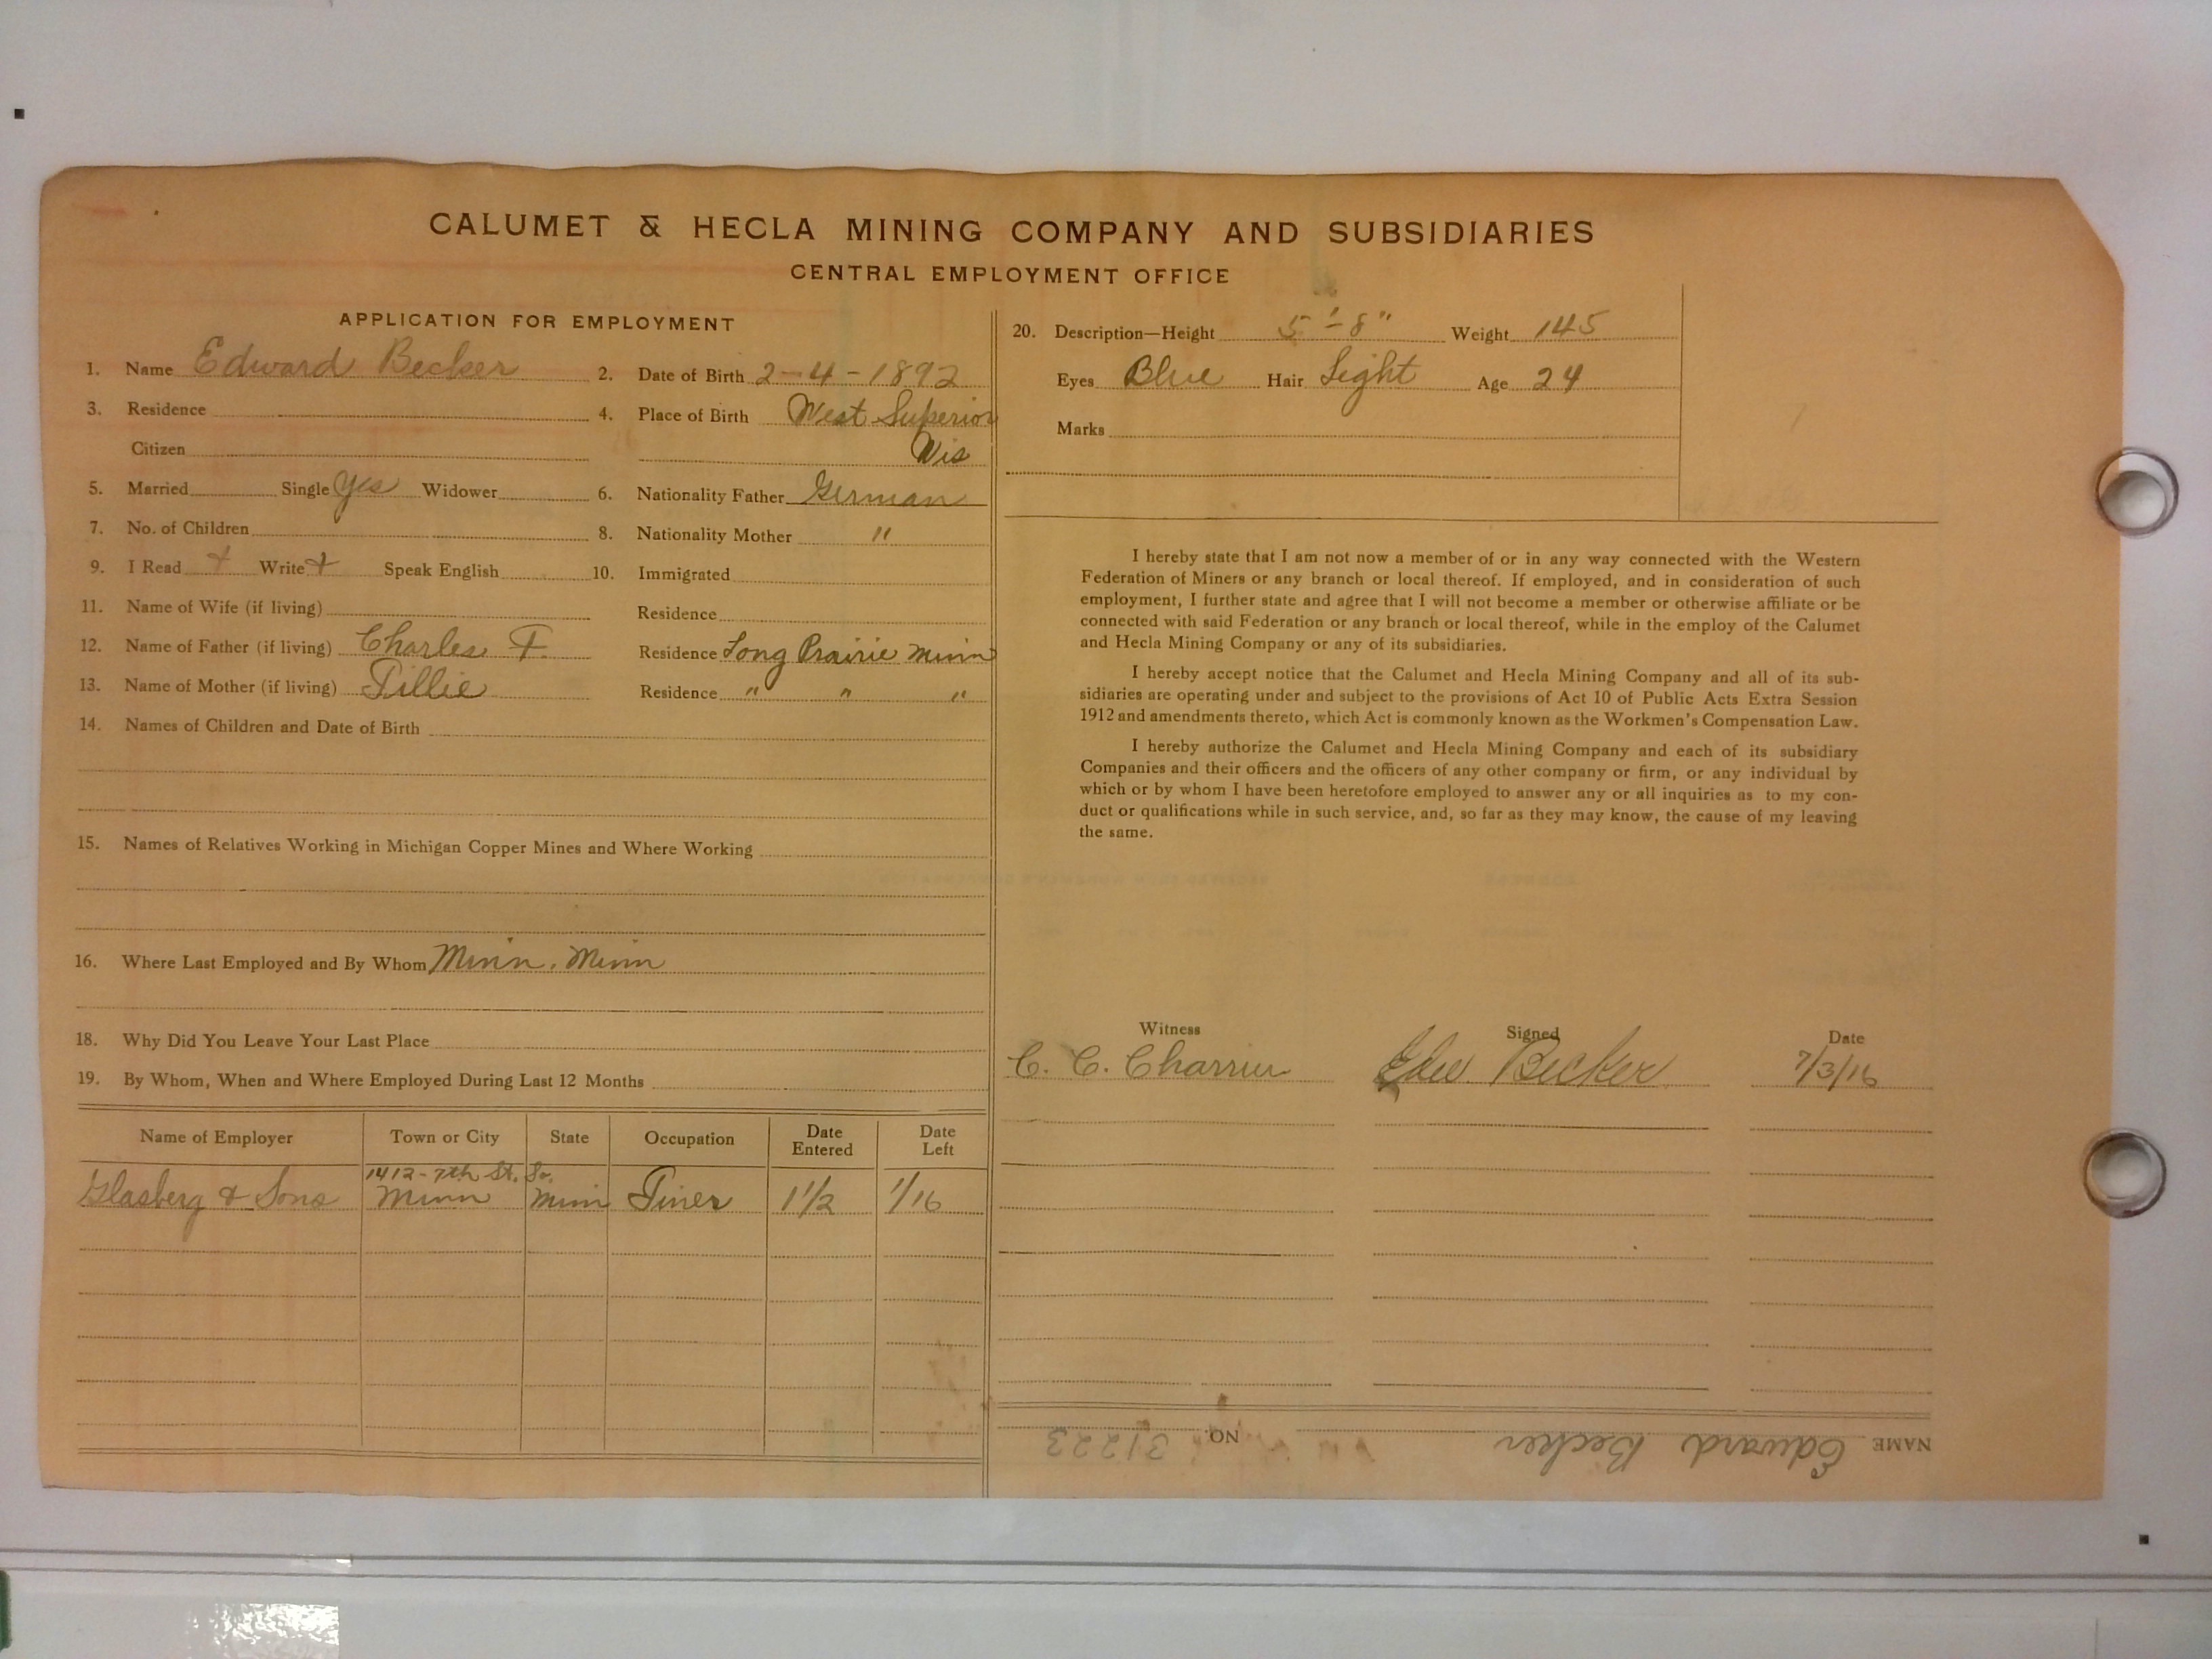 CALUMET & HECLA MINING COMPANY AND SUBSIDIARIES
CENTRAL EMPLOYMENT OFFICE
APPLICATION FOR EMPLOYMENT
1. Name Edward Becker 2. Date of Birth 2-4-1892
3. Residence 4. Place of Birth West Superior
Citizen Wis
5. Married Single Yes Widower 6. Nationality Father German
7. No. of Children 8. Nationality Mother "
9. I Read + Write + Speak English 10. Immigrated
11. Name of Wife (if living) Residence
12. Name of Father (if living) Charles F. Residence Long Prairie Minn
13. Name of Mother (if living) Tillie Residence " " "
14. Names of Children and Date of Birth
15. Names of Relatives Working in Michigan Copper Mines and Where Working
16. Where Last Employed and By Whom Minn. Minn
18. Why Did You Leave Your Last Place
19. By Whom, When and Where Employed During Last 12 Months
Name of Employer Town or City State Occupation Date Entered Date Left
1412-7th St. So.
Glasberg & Sons Minn Minn Tiner 1 1/2 1/16
20. Description—Height 5'-8" Weight 145
Eyes Blue Hair Light Age 24
Marks
I hereby state that I am not now a member of or in any way connected with the Western
Federation of Miners or any branch or local thereof. If employed, and in consideration of such
employment, I further state and agree that I will not become a member or otherwise affiliate or be
connected with said Federation or any branch or local thereof, while in the employ of the Calumet
and Hecla Mining Company or any of its subsidiaries.
I hereby accept notice that the Calumet and Hecla Mining Company and all of its sub-
sidiaries are operating under and subject to the provisions of Act 10 of Public Acts Extra Session
1912 and amendments thereto, which Act is commonly known as the Workmen's Compensation Law.
I hereby authorize the Calumet and Hecla Mining Company and each of its subsidiary
Companies and their officers and the officers of any other company or firm, or any individual by
which or by whom I have been heretofore employed to answer any or all inquiries as to my con-
duct or qualifications while in such service, and, so far as they may know, the cause of my leaving
the same.
Witness Signed Date
C. C. Charrier Edw. Becker 7/3/16
NAME Edward Becker NO. 31223